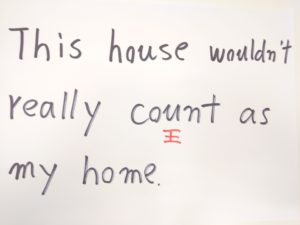 This house wouldn't
really count as
王
my home.